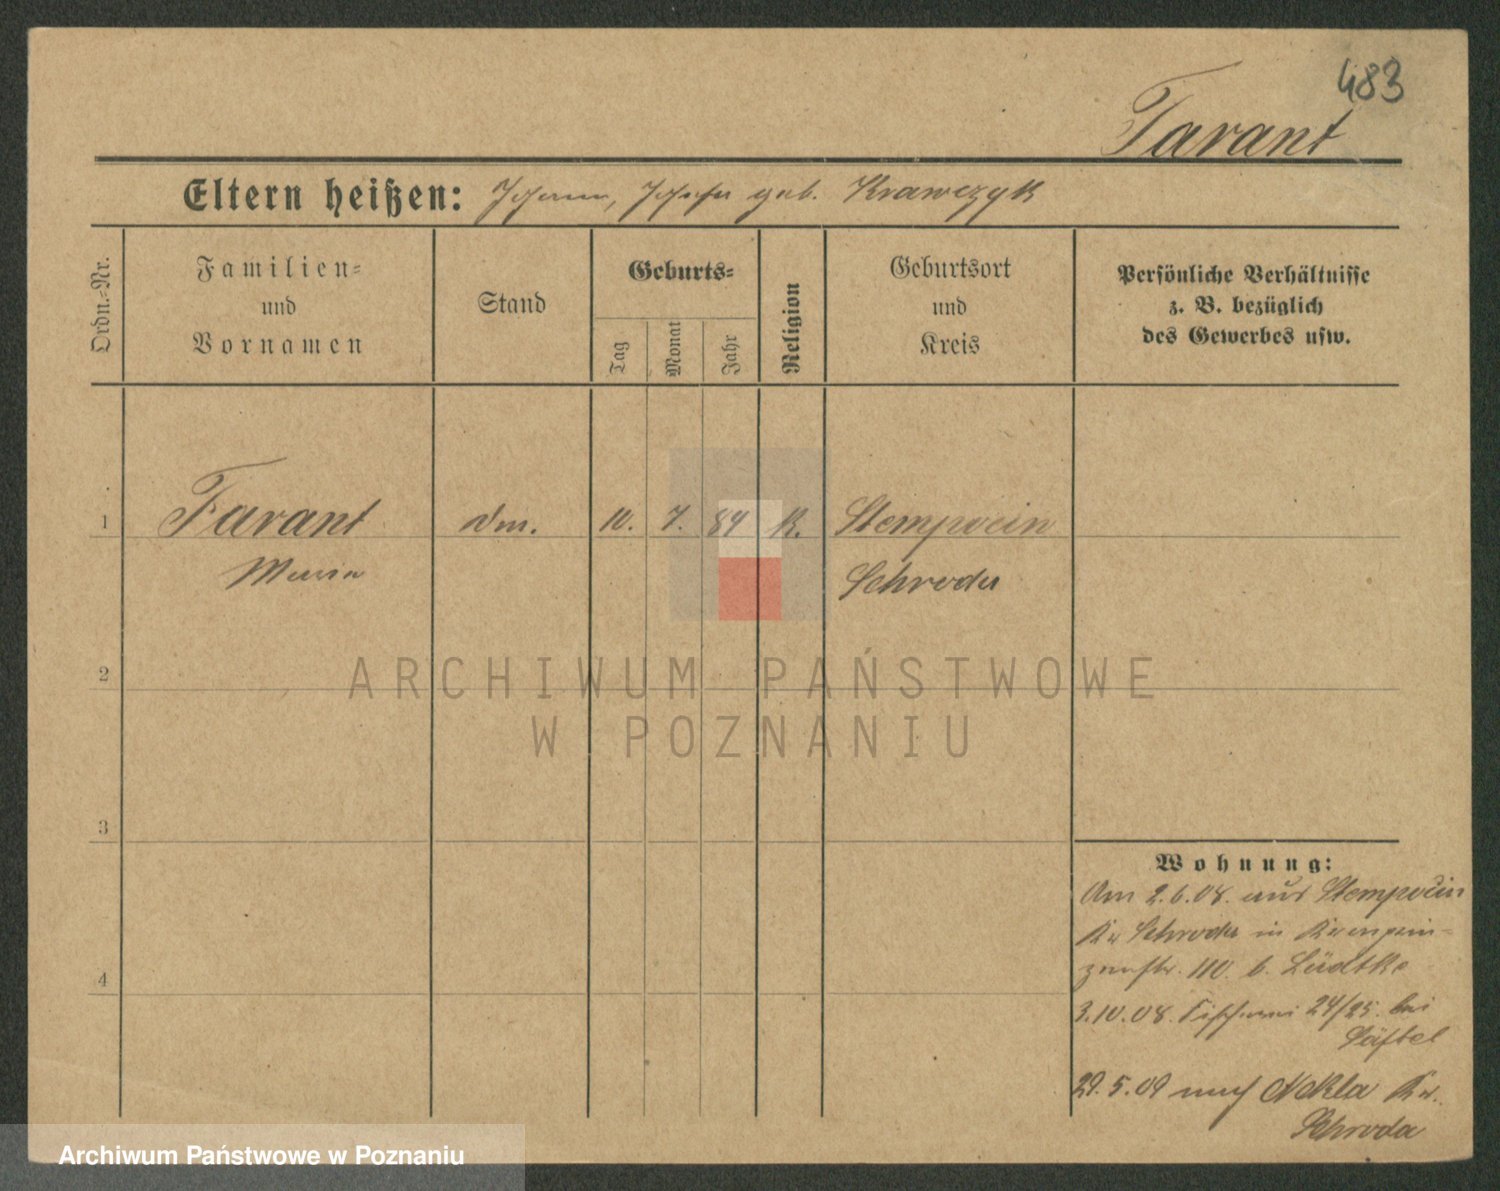 483
Tarant
Eltern heißen: Johann, Josefa geb. Krawczyk
Ordn.-Nr.
Familien-
und
Vornamen
Stand
Geburts-
Tag
Monat
Jahr
Religion
Geburtsort
und
Kreis
Persönliche Verhältnisse
z. B. bezüglich
des Gewerbes usw.
1 Tarant 10. 7. 84 K. Stempocin
Maria Schroda
2
3
4
ARCHIWUM PAŃSTWOWE
W POZNANIU
Wohnung:
Am 2.6.08. aus Stempocin
Kr Schroda in Kronprin-
zenstr. 110. b. Lüdtke
3.10.08. Fischerei 24/25. bei
29.5.09 nach Nekla Kr.
Schroda
Archiwum Państwowe w Poznaniu